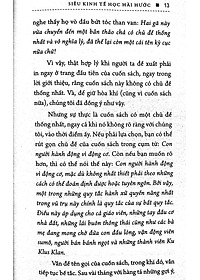 SIÊU KINH TẾ HỌC HÀI HƯỚC ■ 13
nghe thấy họ vò đầu bứt tóc than van: Hai gã này
vừa chuyển đến một bản thảo chả có chủ đề thống
nhất và vô nghĩa lý, đã thế lại còn một cái tên kỳ cục
nữa chứ!
Vì vậy, thật hợp lý khi người ta đề xuất phải
in ngay ở trang đầu tiên của cuốn sách, ngay trong
lời giới thiệu, rằng cuốn sách này không có chủ đề
thống nhất. Và, để giữ hòa khí (cùng vì cuốn sách
nữa), chúng tôi đồng ý như vậy.
Nhưng sự thực là cuốn sách có một chủ đề
thống nhất, ngay cả khi nó không rõ ràng với chúng
tôi, vào thời điểm ấy. Nếu phải lựa chọn, bạn có thể
rút gọn chủ đề của cuốn sách trong cụm từ: Con
người hành động vì động cơ. Còn nếu bạn muốn rõ
hơn, thì có thể nói thế này: Con người hành động
vì động cơ, mặc dù không nhất thiết phải theo những
cách có thể đoán định được hoặc tuyên ngôn. Bởi vậy,
một trong những quy tắc hành xử quyền năng nhất
trong vũ trụ này chính là quy tắc của sự bất quy tắc.
Điều này áp dụng cho cả giáo viên, những tay đầu cơ
nhà đất, những lái buôn thông thái cũng như các bà
mẹ đang mong chờ đứa con đầu lòng, vận động viên
sumo, người bán bánh ngọt và những thành viên Ku
Klux Klan.
Vấn đề tên gọi của cuốn sách, trong khi đó, vẫn
tiếp tục bế tắc. Sau vài tháng với hàng tá những cái